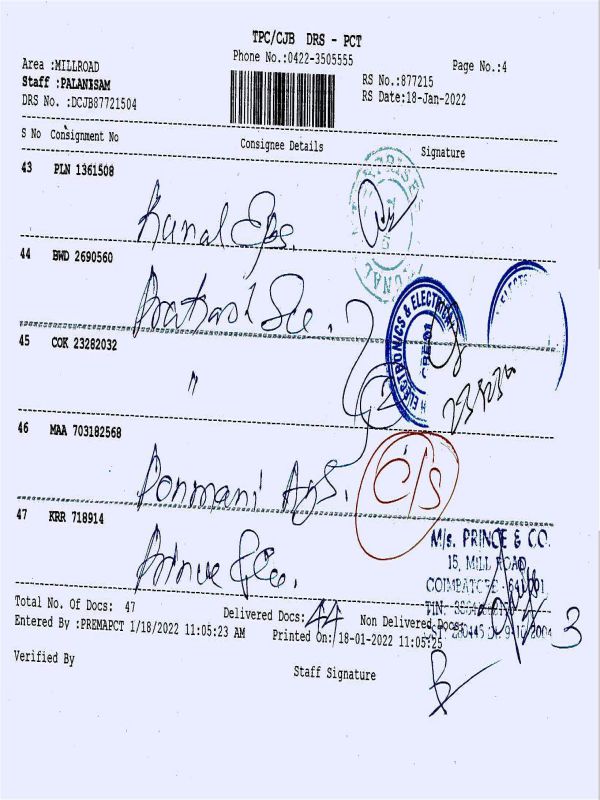 TPC/CJB DRS - PCT
Phone No.:0422-3505555
Page No.:4
Area :MILLROAD
Staff :PALANISAM
DRS No. :DCJB87721504
RS No.:877215
RS Date:18-Jan-2022
S No Consignment No Consignee Details Signature
43 PLN 1361508
Kunal Eps.
44 BWD 2690560
ELECTRONICS & ELECTRICAL
45 COK 23282032
"
46 MAA 703182568
Ponmani Ags.
C/S
47 KRR 718914
Prince
M/s. PRINCE & CO.
15, MILL ROAD,
COIMBATORE - 641 001
TIN:
Total No. Of Docs: 47 Delivered Docs: 44 Non Delivered Docs: 3
Entered By :PREMAPCT 1/18/2022 11:05:23 AM Printed On: 18-01-2022 11:05:25
Verified By
Staff Signature